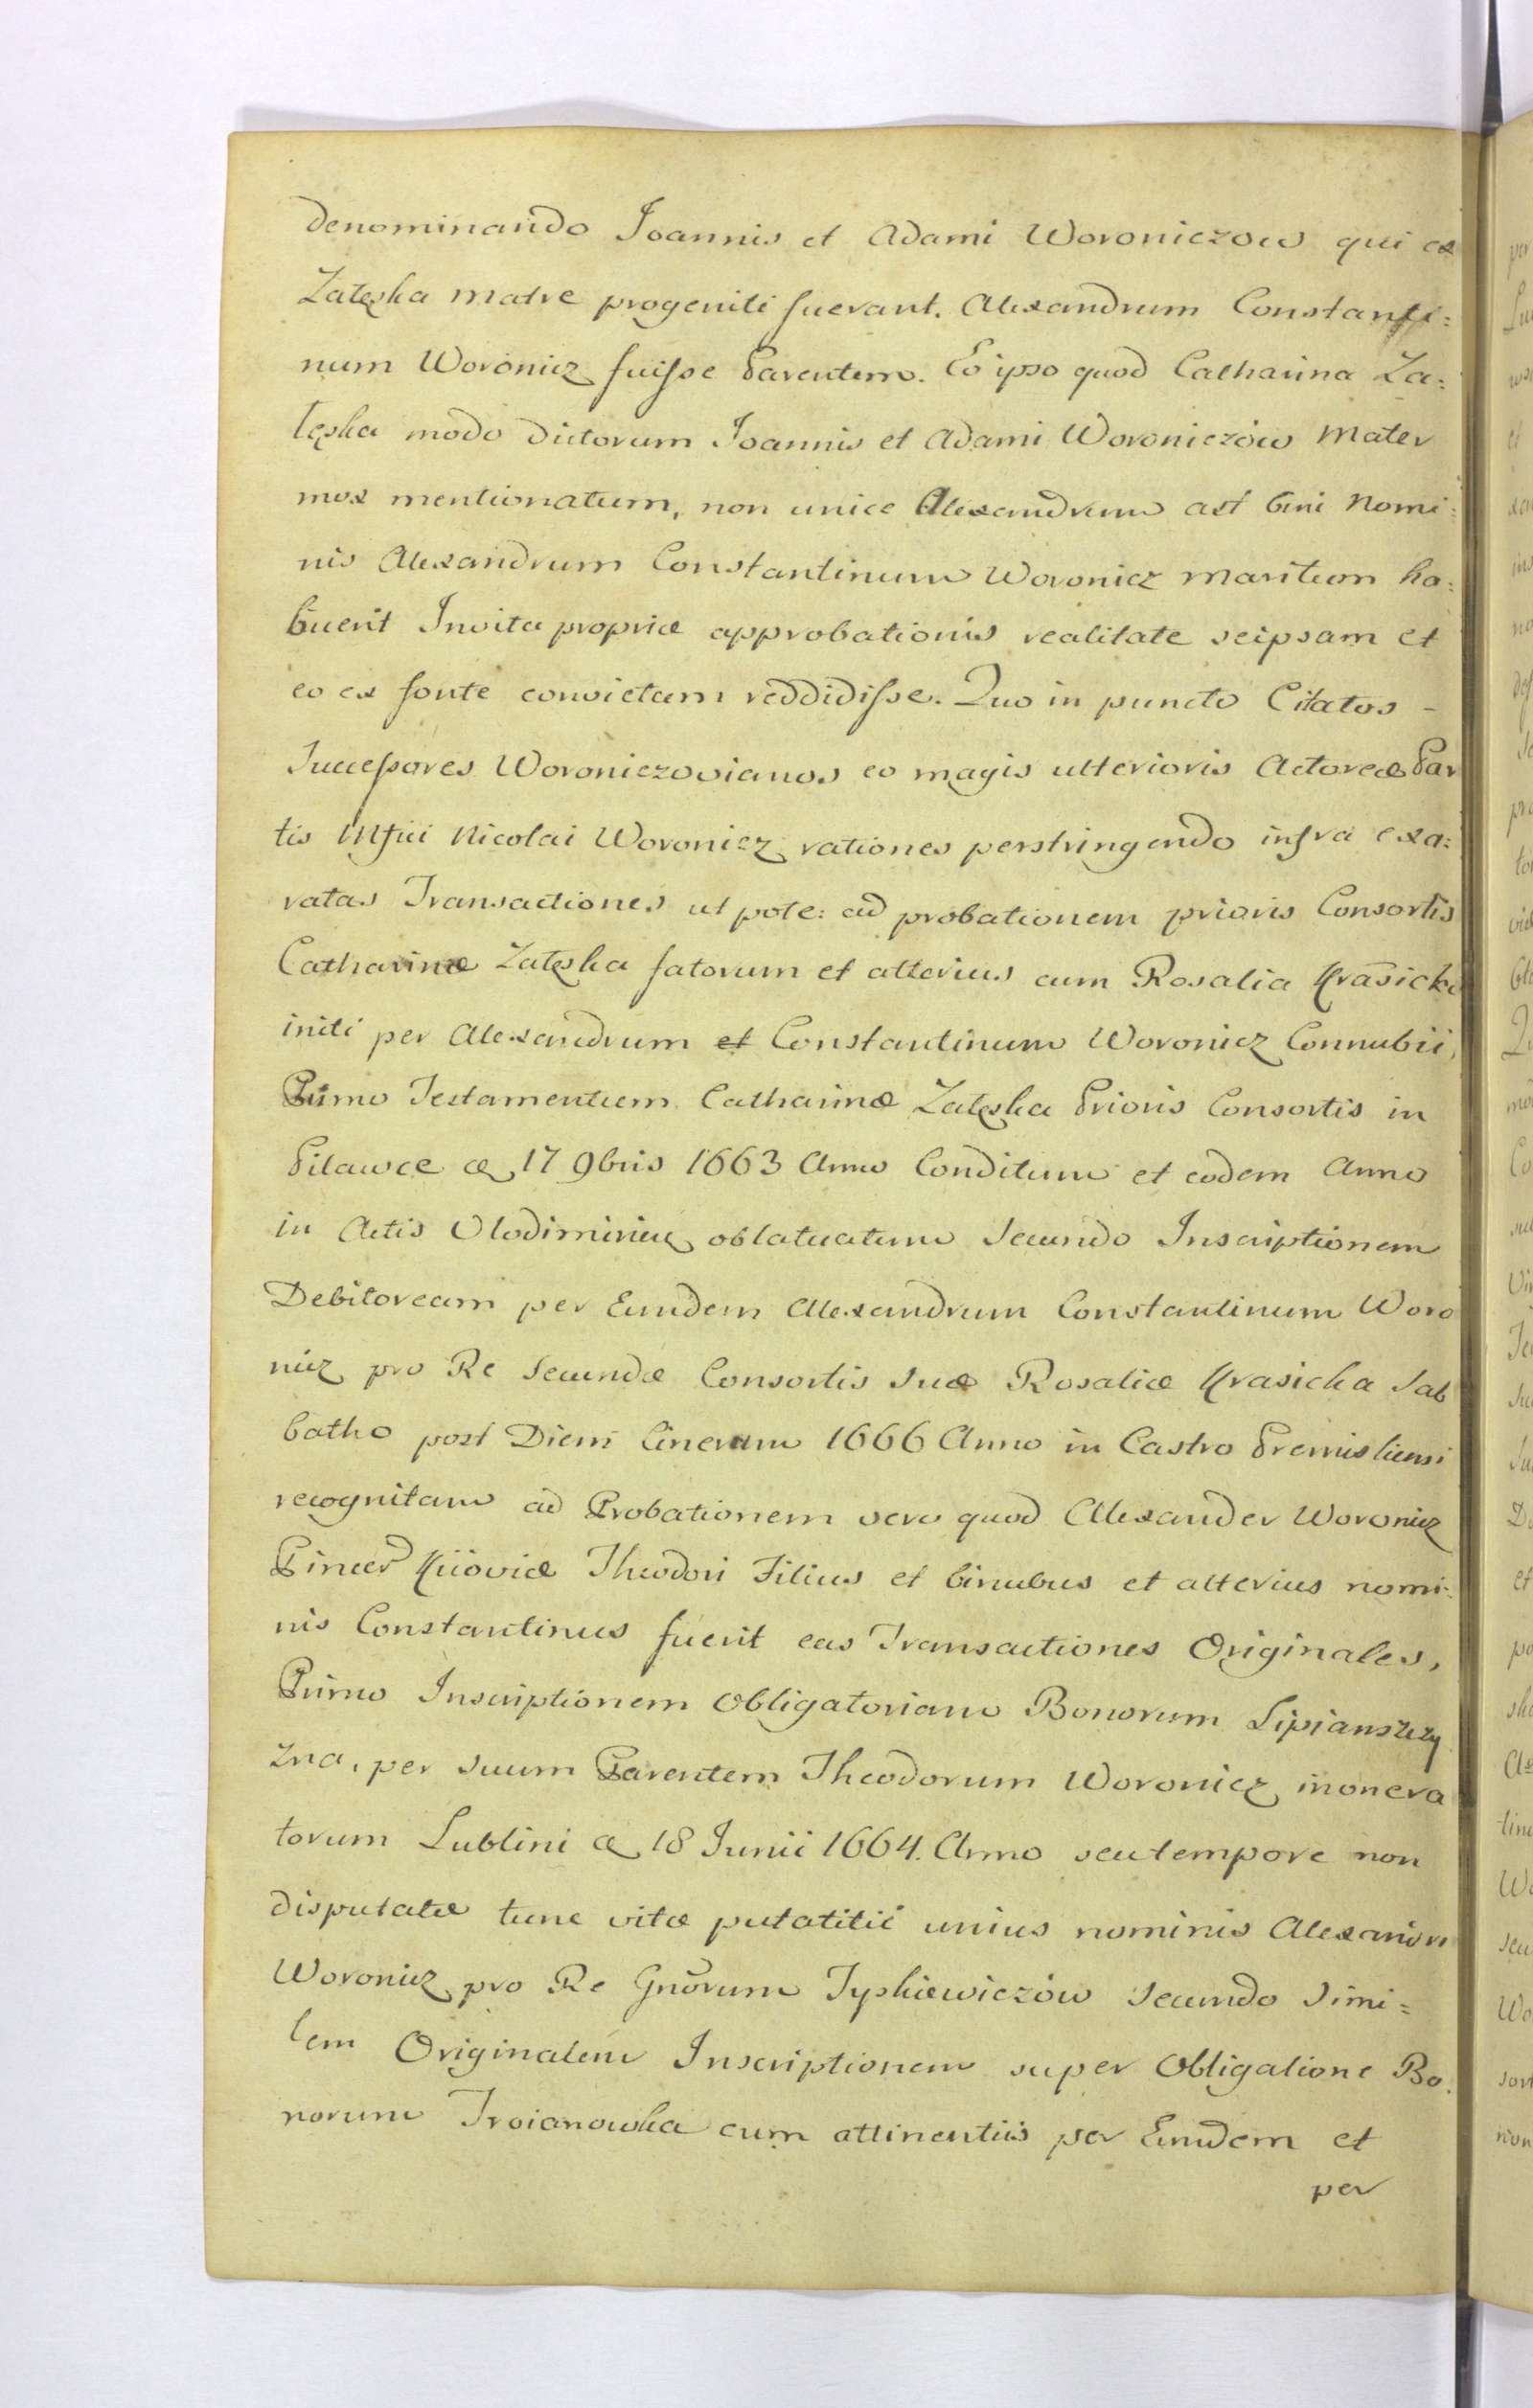 denominando Joannis et Adami Woroniczow qui ex
Załęska matre progeniti fuerant. Alexandrum Constanti=
num Woronicz fuisse Parentem. Eo ipso quod Catharina Za=
łęska modo dictorum Joannis et Adami Woroniczów Mater
mox mentionatum, non unice Alexandrum ast bini Nomi=
nis Alexandrum Constantinum Woronicz maritum ha=
buerit Invita propriæ approbationis realitate seipsam et
eo ex fonte convictam reddidisse. Quo in puncto Citatos -
Successores Woroniczovianos eo magis ulterioris Actoreæ Par
tis Mfici Nicolai Woronicz rationes perstringendo infra exa=
ratas Transactiones ut pote: ad probationem prioris Consortis
Catharinæ Załęska fatorum et alterius cum Rosalia Krasicka
initi per Alexandrum et Constantinum Woronicz Connubii,
Primo Testamentum Catharinæ Załęska Prioris Consortis in
Pilawce æ 17 9bris 1663 Anno Conditum et eodem Anno
in Actis Vlodimirien oblatuatum Secundo Inscriptionem
Debitoream per Eundem Alexandrum Constantinum Woro
nicz pro Re Secundæ Consortis Suæ Rosaliæ Krasicka Sab
batho post Diem Cinerum 1666 Anno in Castro Premisliensi
recognitam ad Probationem vero quod Alexander Woronicz
Pincer Kiioviæ Theodori Filius et binubus et alterius nomi=
nis Constantinus fuerit eas Transactiones Originales,
Primo Inscriptionem Obligatoriam Bonorum Lipianszczy
zna, per suum Parentem Theodorum Woronicz inonera
torum Lublini æ 18 Junii 1664. Anno seu tempore non
disputatæ tunc vitæ putatitii unius nominis Alexandri
Woronicz pro Re Gnorum Tyszkiewiczów Secundo Simi=
lem Originalem Inscriptionem super Obligatione Bo
norum Troianowka cum attinentiis per Eundem et
per